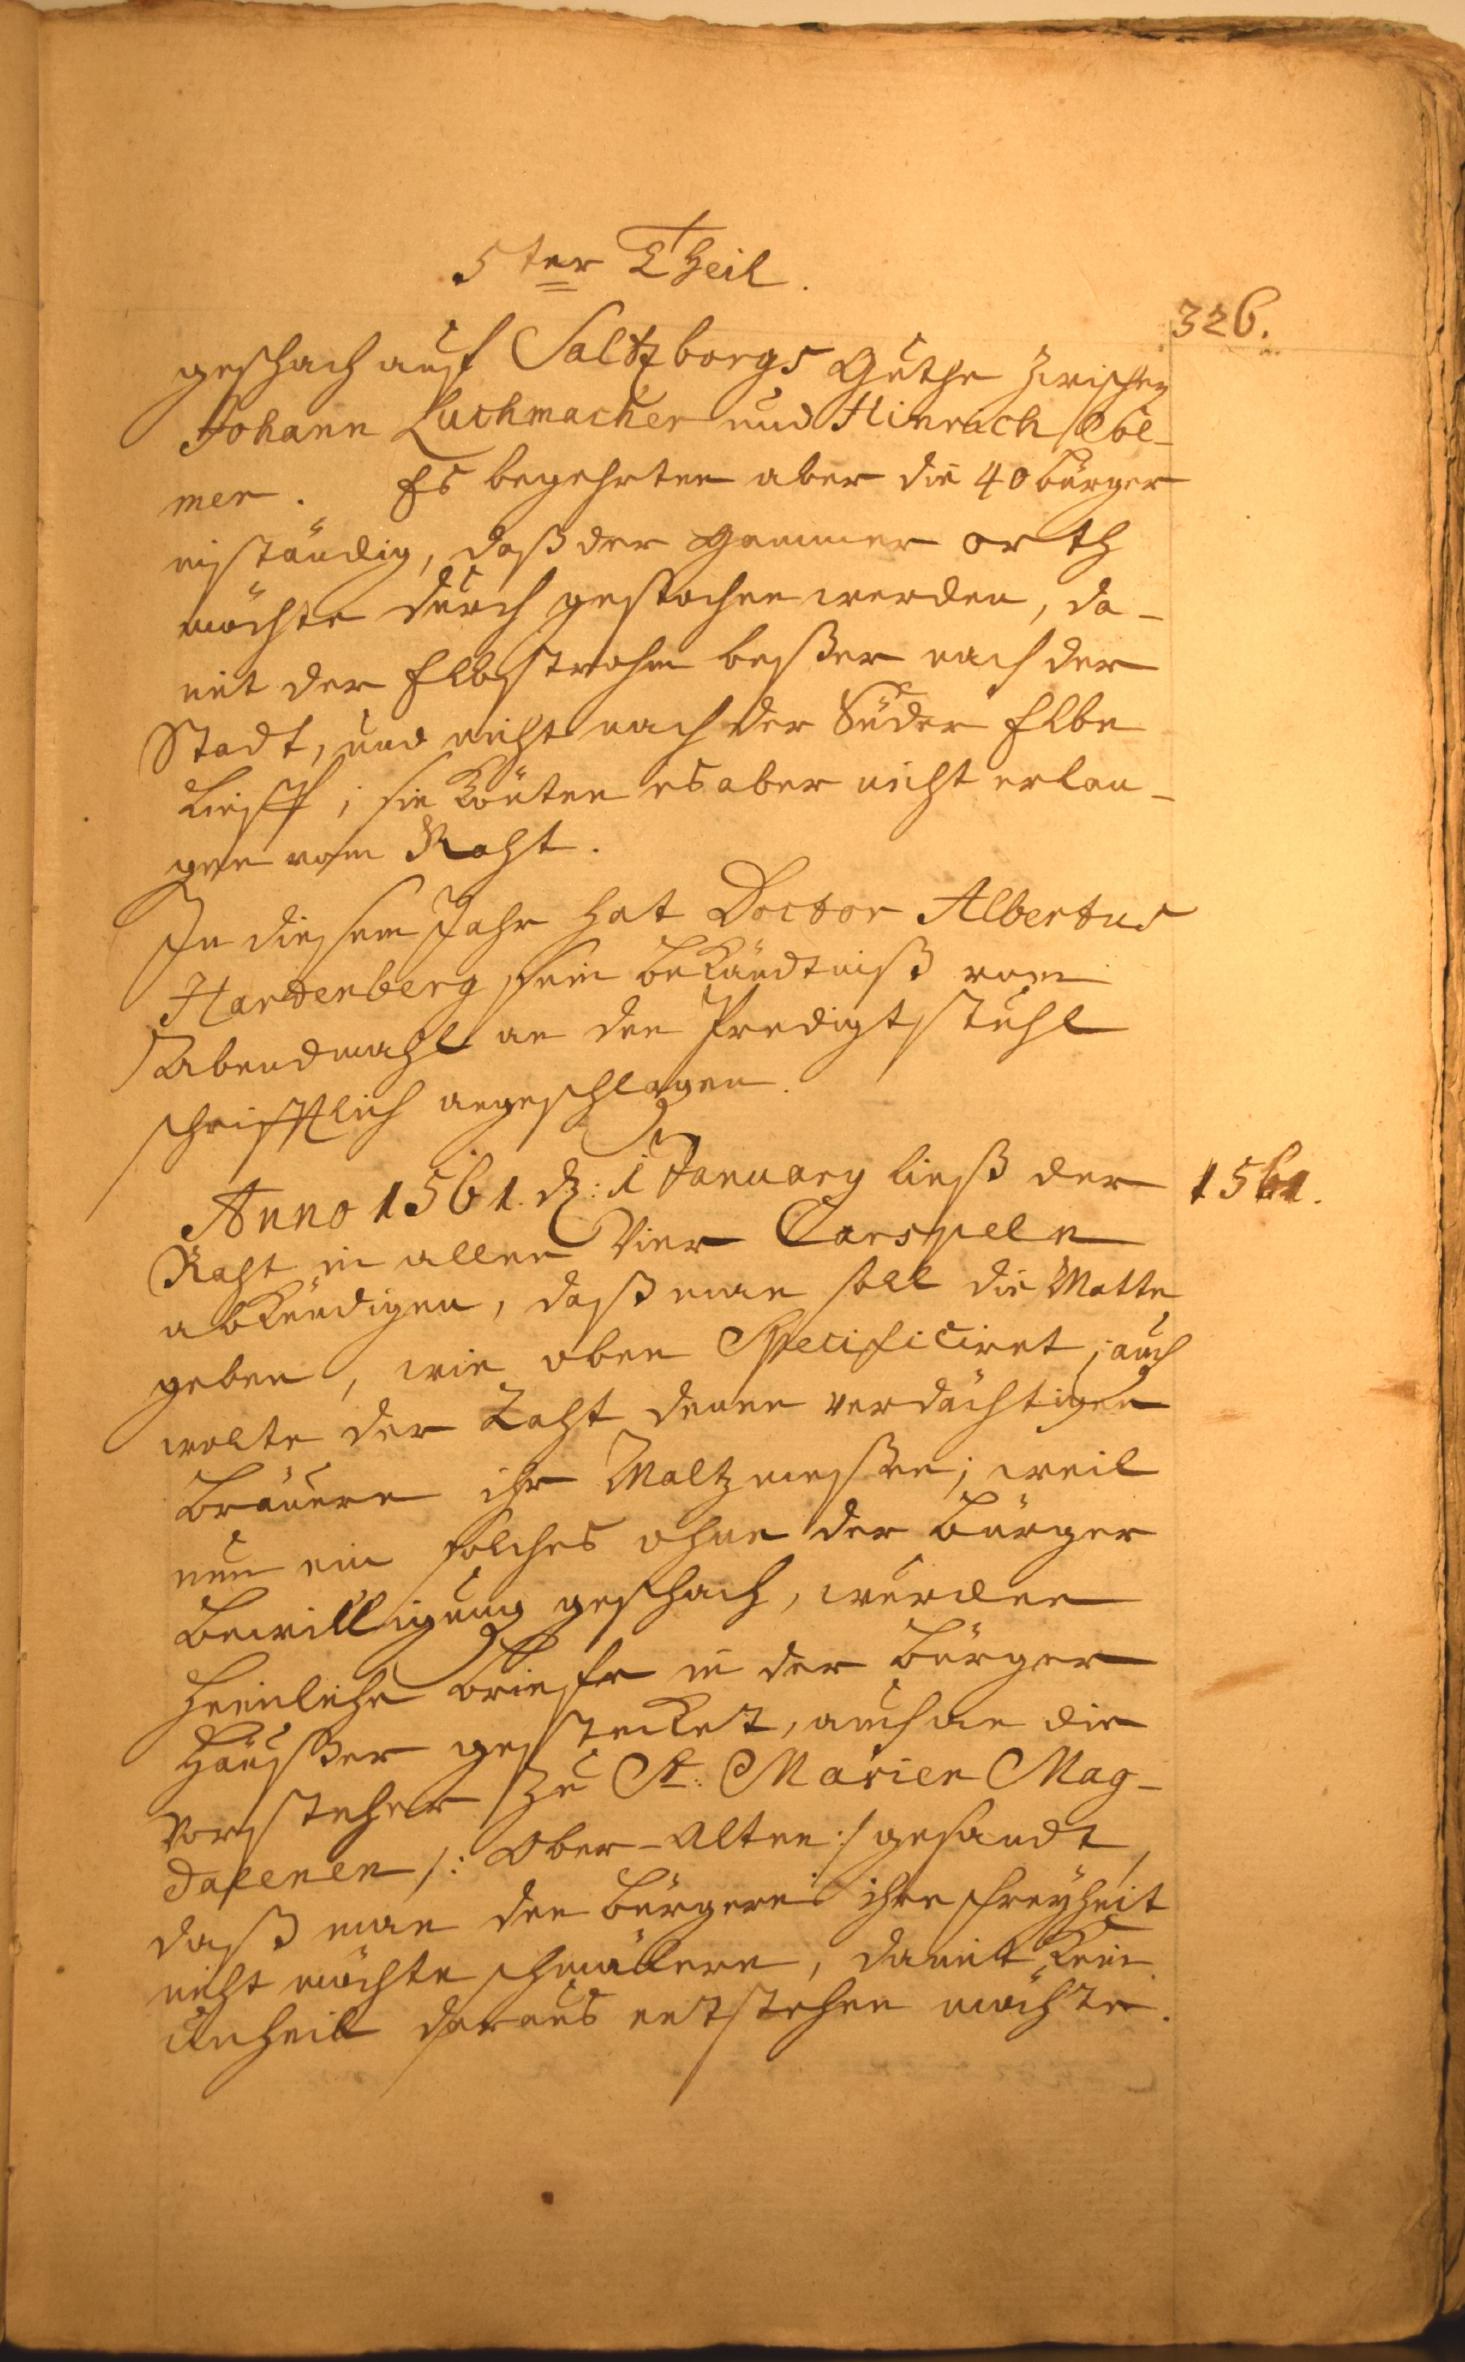 5ter Theil.
326.
geschach auf Saltzborgs Guthe zwischen
Johann Luchmacher und Hinrich
mer. Es begehrten aber die 40 bürger
inständig, daß der Hammer orth
möchte durch gestochen werden, da-
mit der Elbstrohm beßer nach der
Stadt, und nicht nach der Süder Elbe
lieff; sie könten es aber nicht erlan-
gen vom Raht.
In diesem Jahr hat Doctor Albertus
Hardenberg sein bekändtniß vom
Abendmahl an den Predigtstuhl
schrifftlich angeschlagen.
Anno 1561. d: 1 January ließ der
1561.
Raht in allen Vier Carspeln
abkündigen, daß man soll die Matte
geben, wie oben Specificiret; auch
wolte der Raht denen verdächtigen
bräuern ihr Maltz meßen; weil
nun ein solches ohne der bürger
bewilligung geschach, wurden
heimliche briefe in der bürger
häußer gestecket, auch an die
Vorsteher zu St: Marien Mag-
dalenen /: Ober-Alten :/ gesandt,
daß man den bürgern ihre freyheit
nicht möchte schmälern, damit kein
Unheil daraus entstehen möchte.